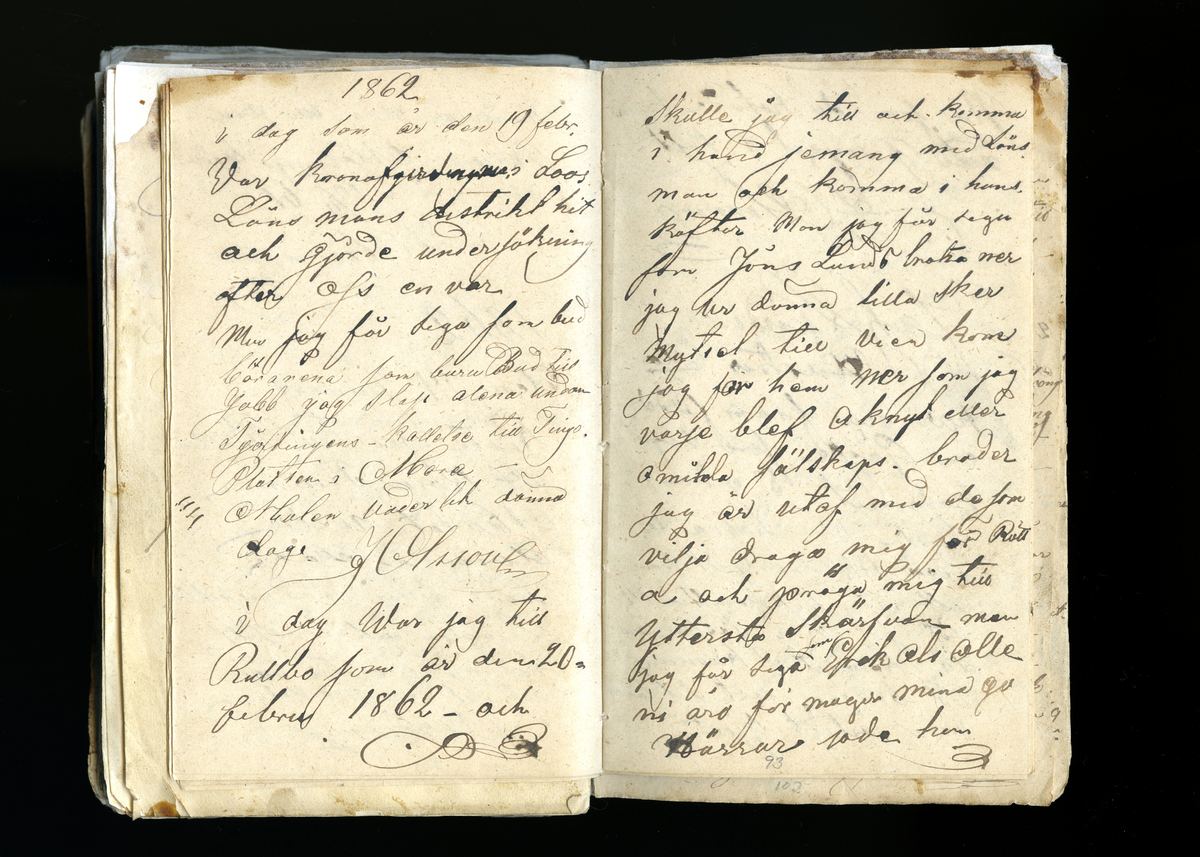 1862
i dag som är den 19 febr.
War krono fjerdingman i Loos
Läns mans distrikt hit
och gjörde undersökning
efter Oss en var
Men jag får sega som bud
bärarena som buru Bud till
Jobb jag slap alena undan
Tjörtingens kallelse till Tings
Platten i Mora
Mulen väderlek dånna
dag. J Olsson
i dag War jag till
Rullbo som är den 20
febru 1862 - och
skulle jag till och komma
i hand jemang med Läns
man och komma i hans
käfter Men jag får sega
som Jöns Lunds
jag ur dånna lilla sker
Mytsel till vien kom
jag för hem Mer som jag
varje blef Oknyt eller
Omilda sälskaps. broder
jag är utaf med de som
vilja draga mig för Rätt
a och pröga mig till
Yttersta Skärfven men
jag får sega som Erik Ols Olle
ni äro för mager mina go
Härrar sade han
93
102